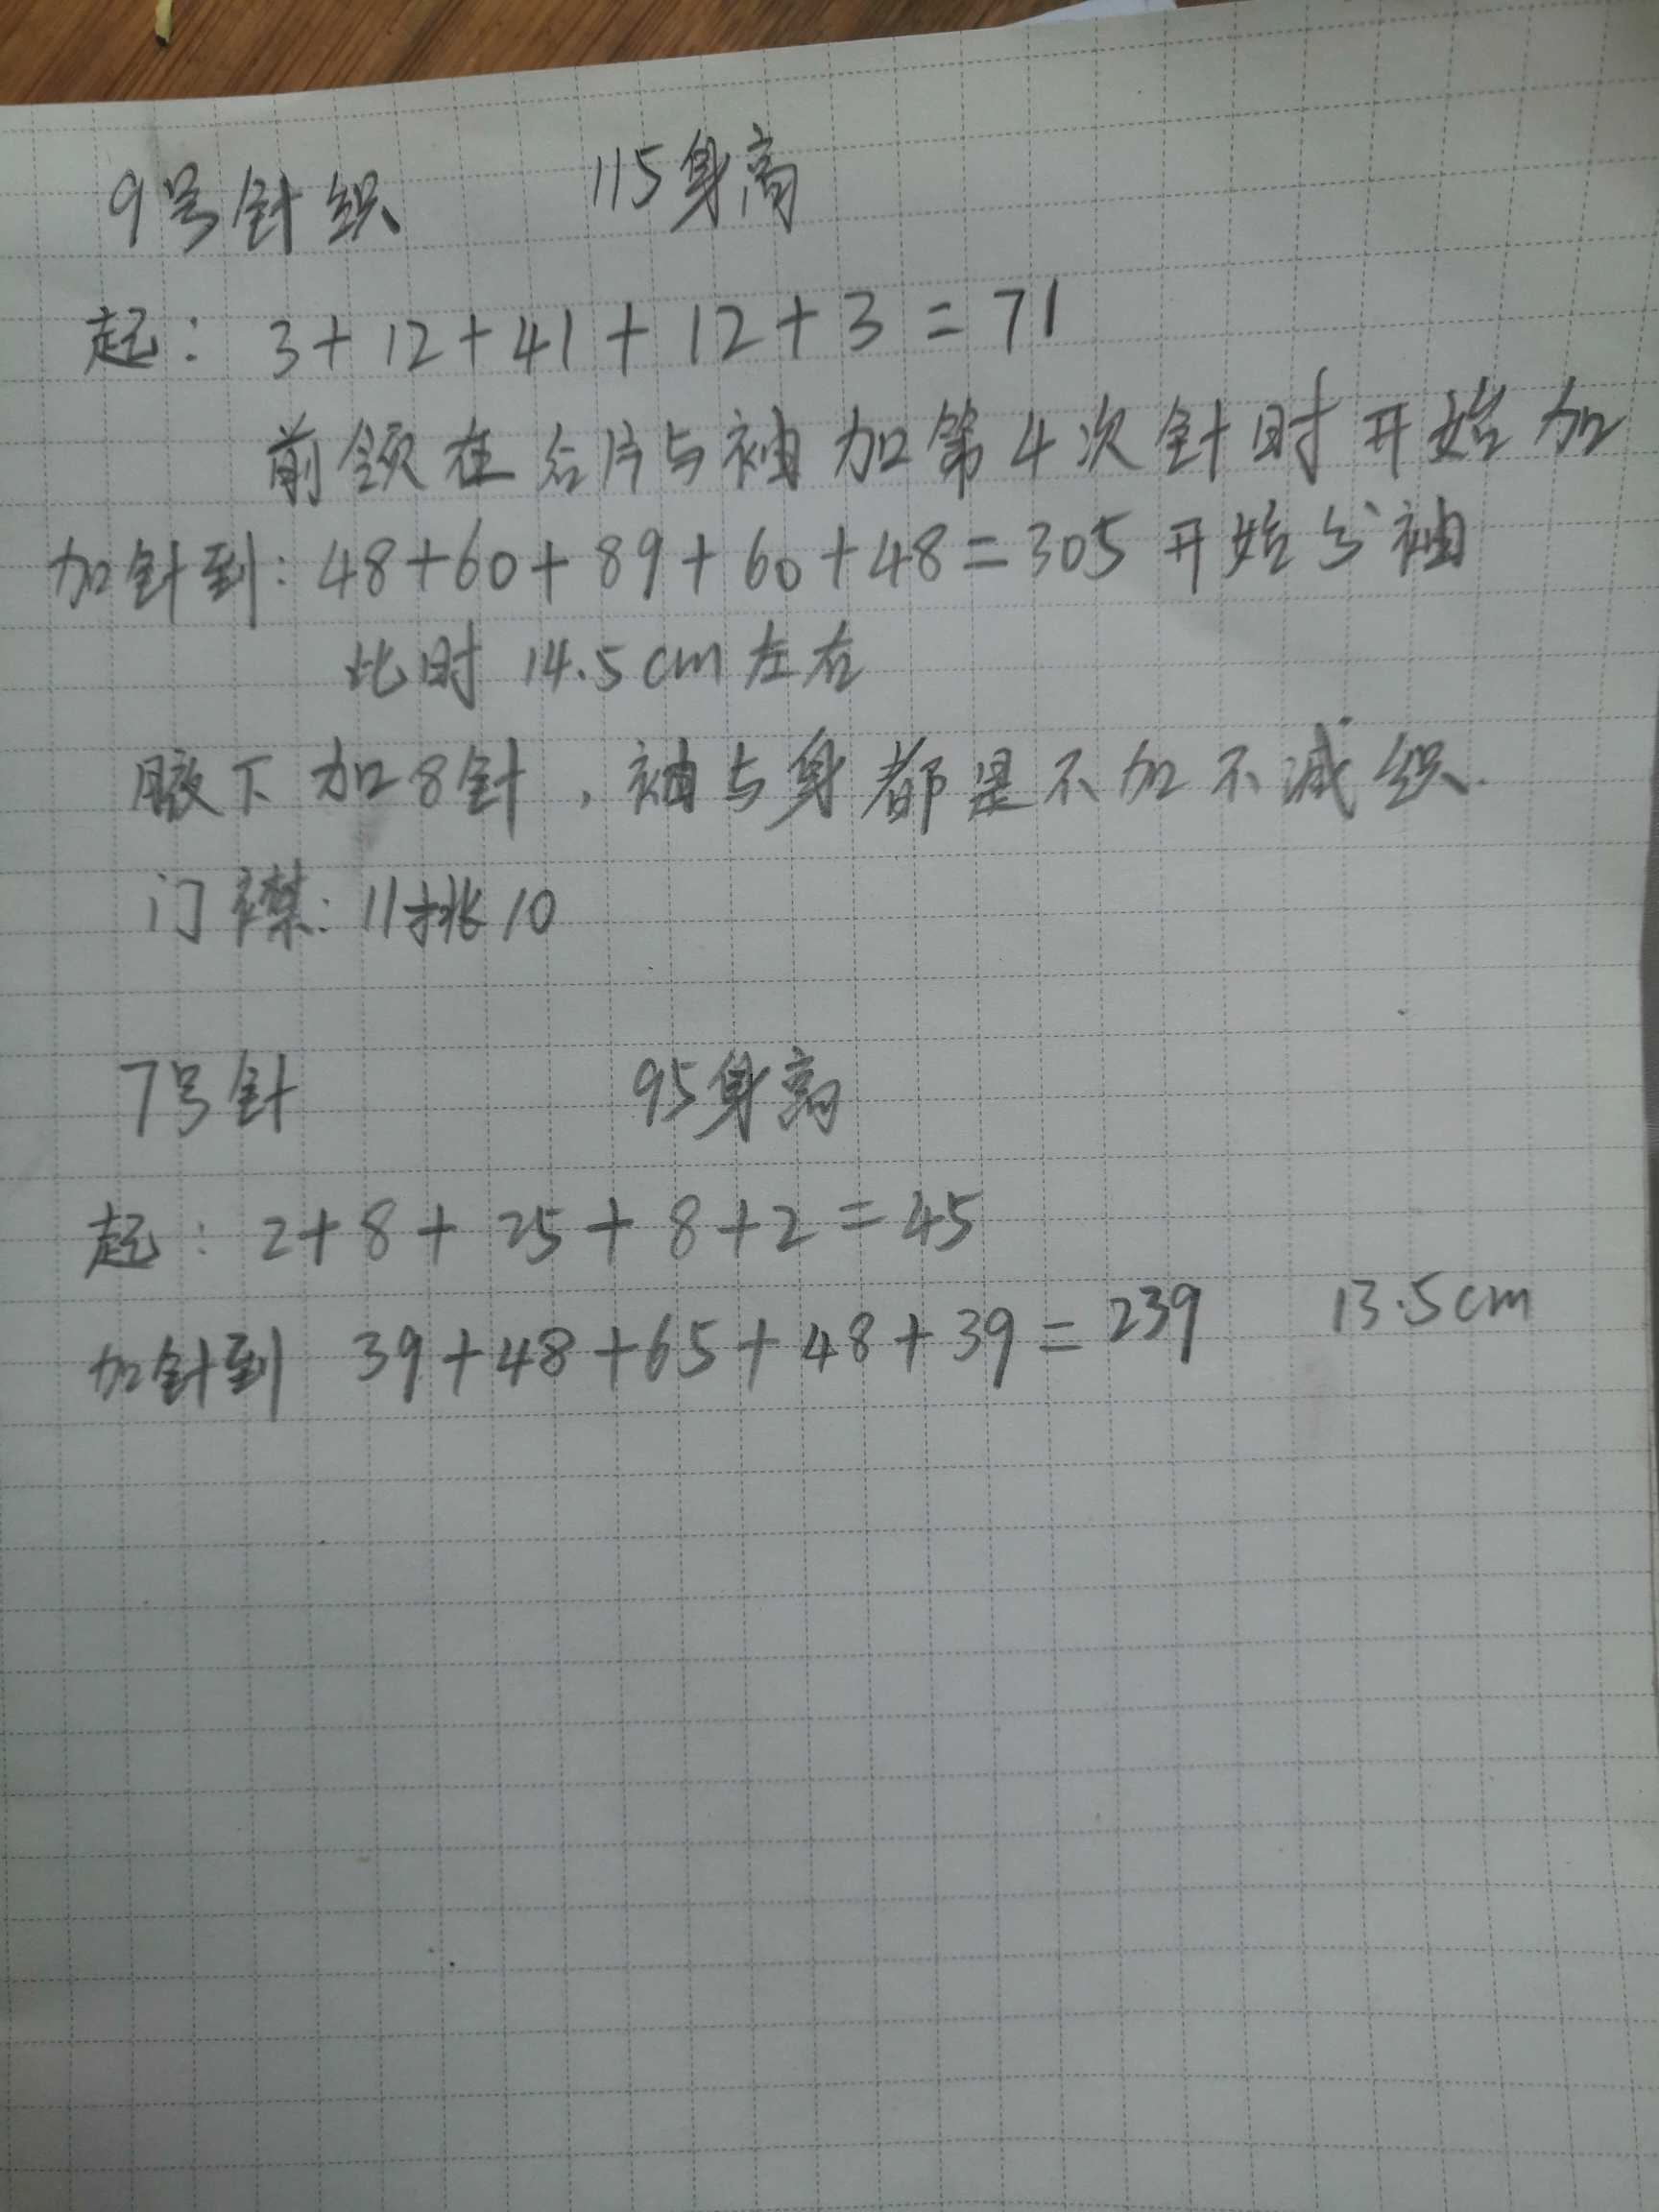 9号针织 115身高
起: 3+12+41+12+3=71
前领在后片与袖加第4次针时开始加
加针到: 48+60+89+60+48=305 开始分袖
此时 14.5cm左右
腋下加8针,袖与身都是不加不减织.
门襟: 11挑10
7号针 95身高
起: 2+8+25+8+2=45
加针到 39+48+65+48+39=239 13.5cm